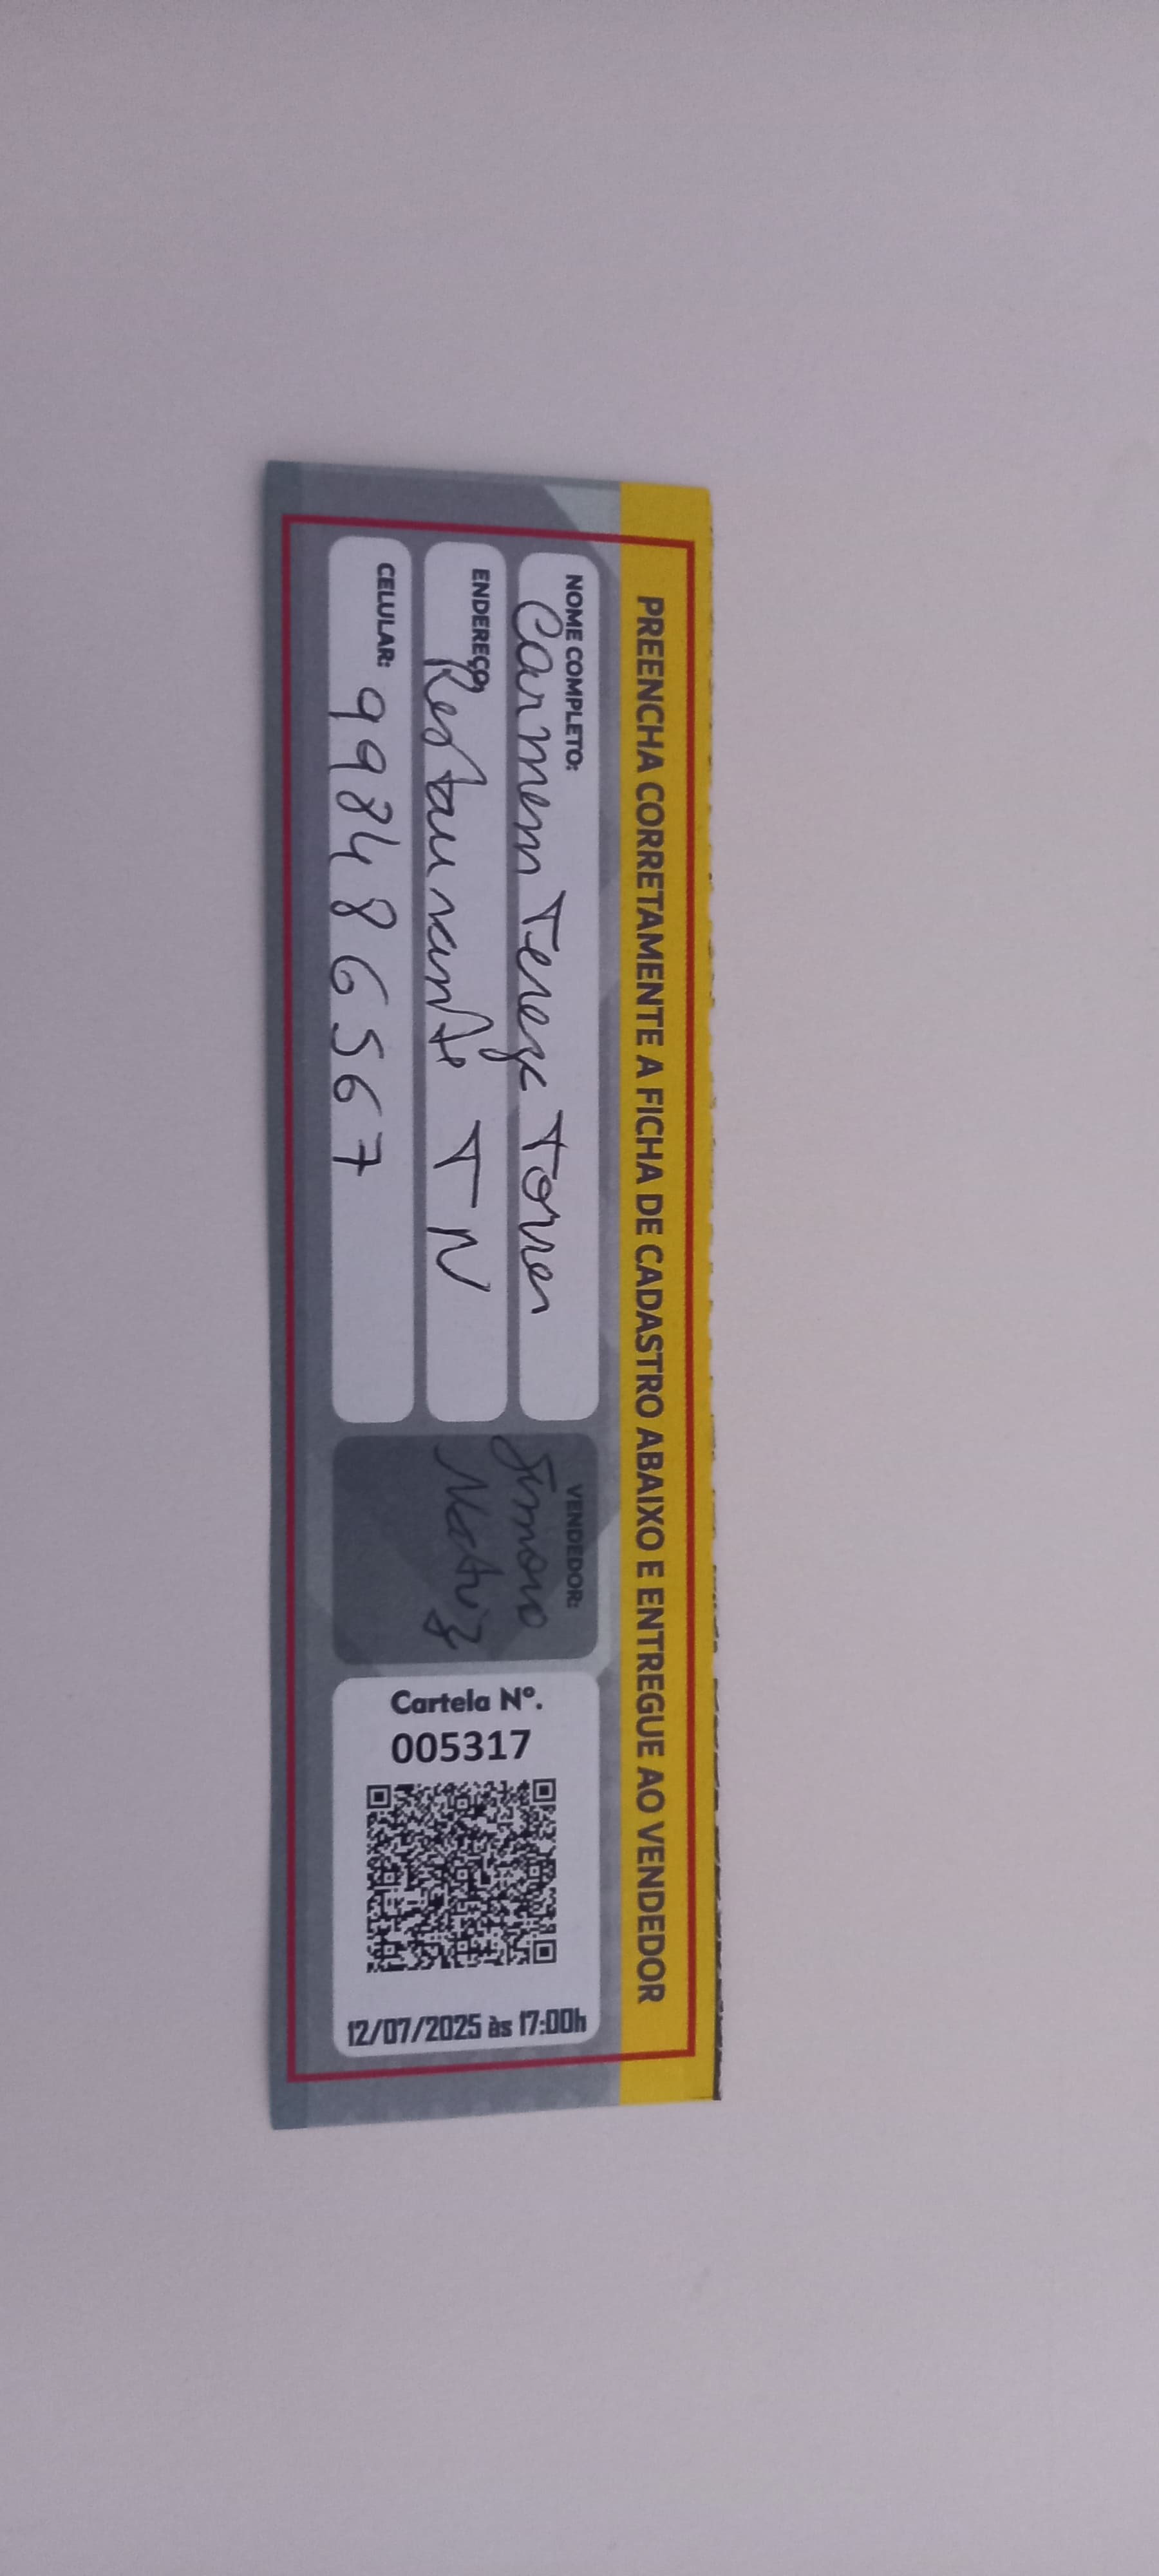 PREENCHA CORRETAMENTE A FICHA DE CADASTRO ABAIXO E ENTREGUE AO VENDEDOR
NOME COMPLETO:
Carmem Tereza Torres
ENDEREÇO:
Restaurante TN
CELULAR:
998486567
VENDEDOR:
Simone
Matriz
Cartela Nº.
005317
12/07/2025 às 17:00h